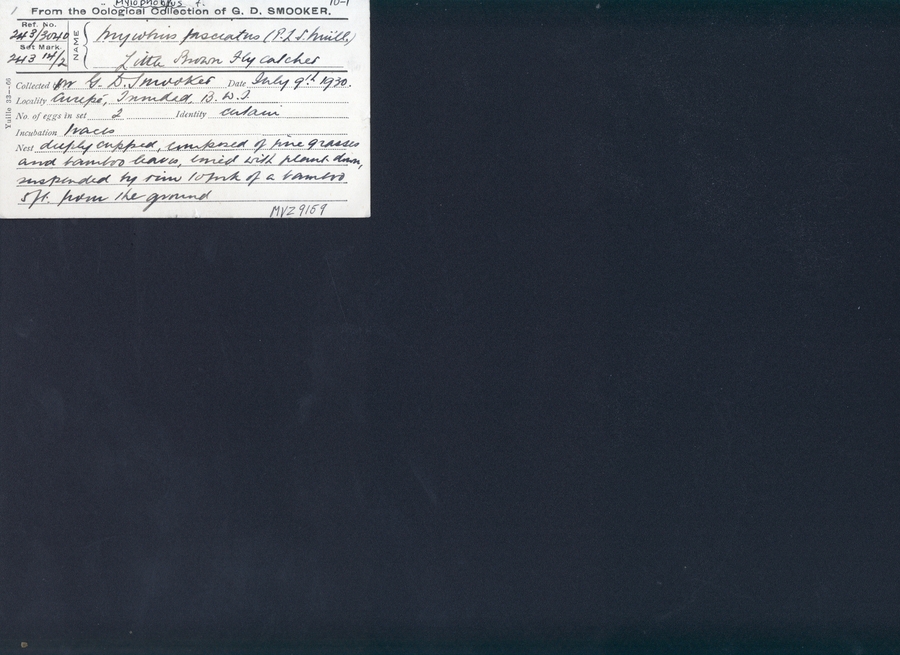 Myiophobus f. 10-1
1 From the Oological Collection of G. D. SMOOKER.
Ref. No.
243/3040
Set Mark.
243 14/2
NAME
fasciatus (P.L.S. Müll.)
Little Brown Flycatcher
Collected by G. D. Smooker Date July 9th 1930.
Locality Curepe, Trinidad, B.W.I.
No. of eggs in set 2 Identity certain
Incubation traces
Nest deeply cupped, composed of fine grasses
and bamboo leaves, lined with plant down,
suspended by rim to fork of a bamboo
5ft. from the ground
MVZ 9159
Yuille 33—66